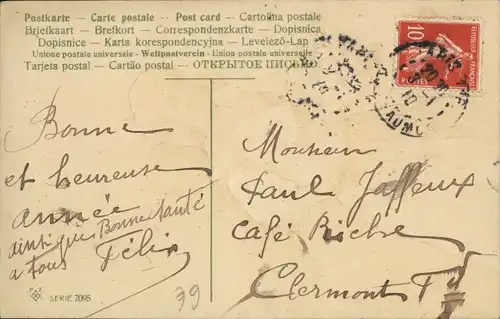 Postkarte - Carte postale - Post card - Cartolina postale
Briefkaart - Brefkort - Correspondenzkarte - Dopisnica
Dopisnice - Karta korespondencyjna - Levelező-Lap
Unione postale universale - Weltpostverein - Union postale universelle
Tarjeta postal - Cartão postal - ОТКРЫТОЕ ПИСЬМО
10
POSTES
Bonne
et heureuse
année
ainsi que Bonne santé
a tous Félix
Monsieur
Paul Jaffeux
Café Riche
Clermont Fd
SERIE 7095
79